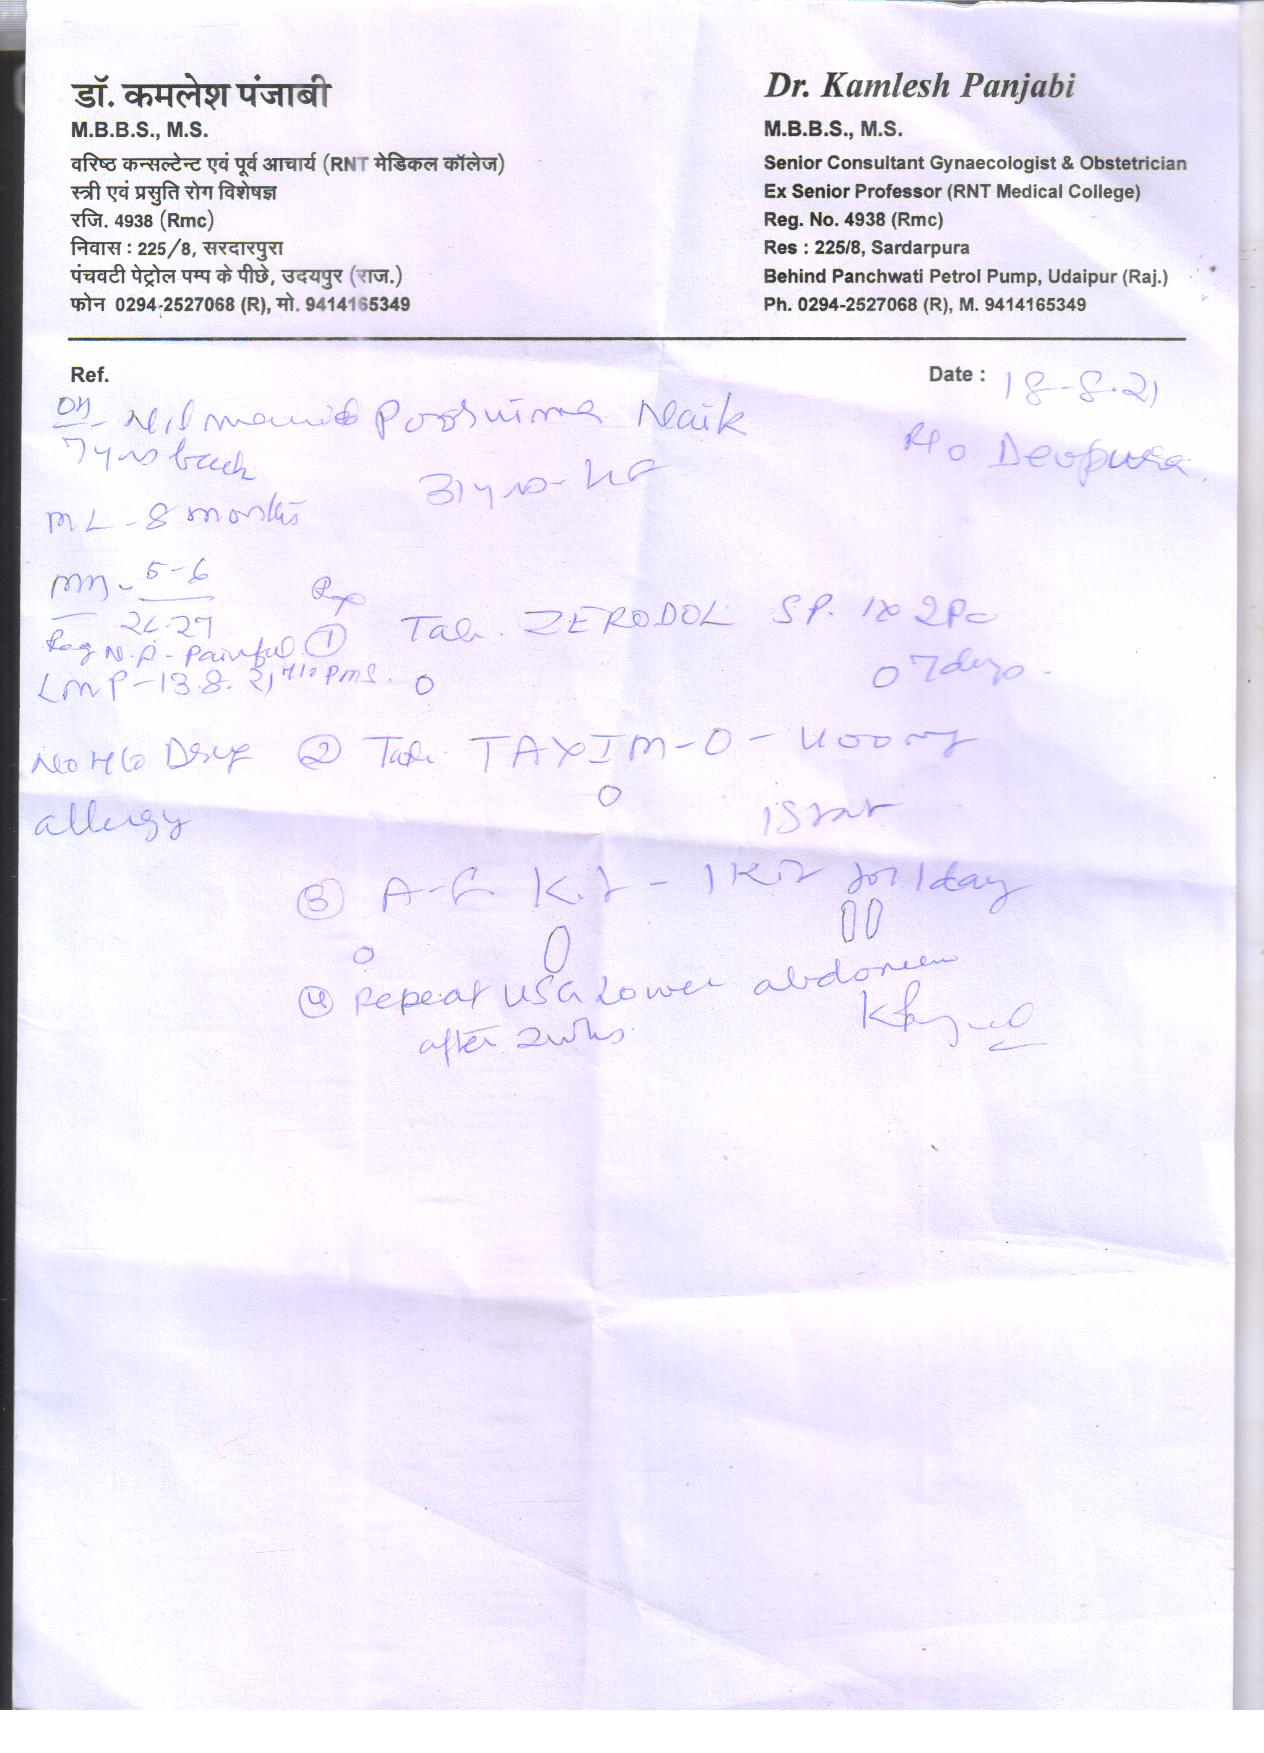 डॉ. कमलेश पंजाबी
M.B.B.S., M.S.
वरिष्ठ कन्सल्टेन्ट एवं पूर्व आचार्य (RNT मेडिकल कॉलेज)
स्त्री एवं प्रसुति रोग विशेषज्ञ
रजि. 4938 (Rmc)
निवास : 225/8, सरदारपुरा
पंचवटी पेट्रोल पम्प के पीछे, उदयपुर (राज.)
फोन 0294-2527068 (R), मो. 9414165349
Dr. Kamlesh Panjabi
M.B.B.S., M.S.
Senior Consultant Gynaecologist & Obstetrician
Ex Senior Professor (RNT Medical College)
Reg. No. 4938 (Rmc)
Res : 225/8, Sardarpura
Behind Panchwati Petrol Pump, Udaipur (Raj.)
Ph. 0294-2527068 (R), M. 9414165349
Ref.
Date : 18-8-21
Poornima Naik
R/o Deopura
7 yrs back
31 yrs
ML - 8 months
MH - 5-6
26-27
Rx
Reg N.P. - Painful
LMP - 13.8.21
① Tab. ZERODOL SP. 1x2 PC
07 days.
No H/o Drug
allergy
② Tab. TAXIM-O - 400 mg
1 Stat
③ A-F Kit - 1 Kit for 1 day
④ Repeat USG Lower abdomen
after 2 wks.